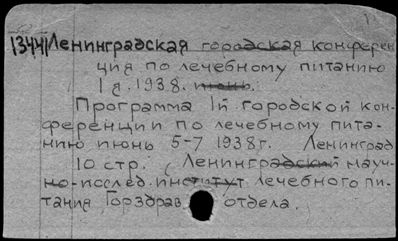 13441 Ленинградская городская конферен
ция по лечебному питанию
1я. 1938. июнь.
Программа 1й городской кон-
ференции по лечебному пита-
нию июнь 5-7 1938г. Ленинград
10 стр. (Ленинградский науч-
но-исслед. институт лечебного пи-
тания Горздрав отдела.